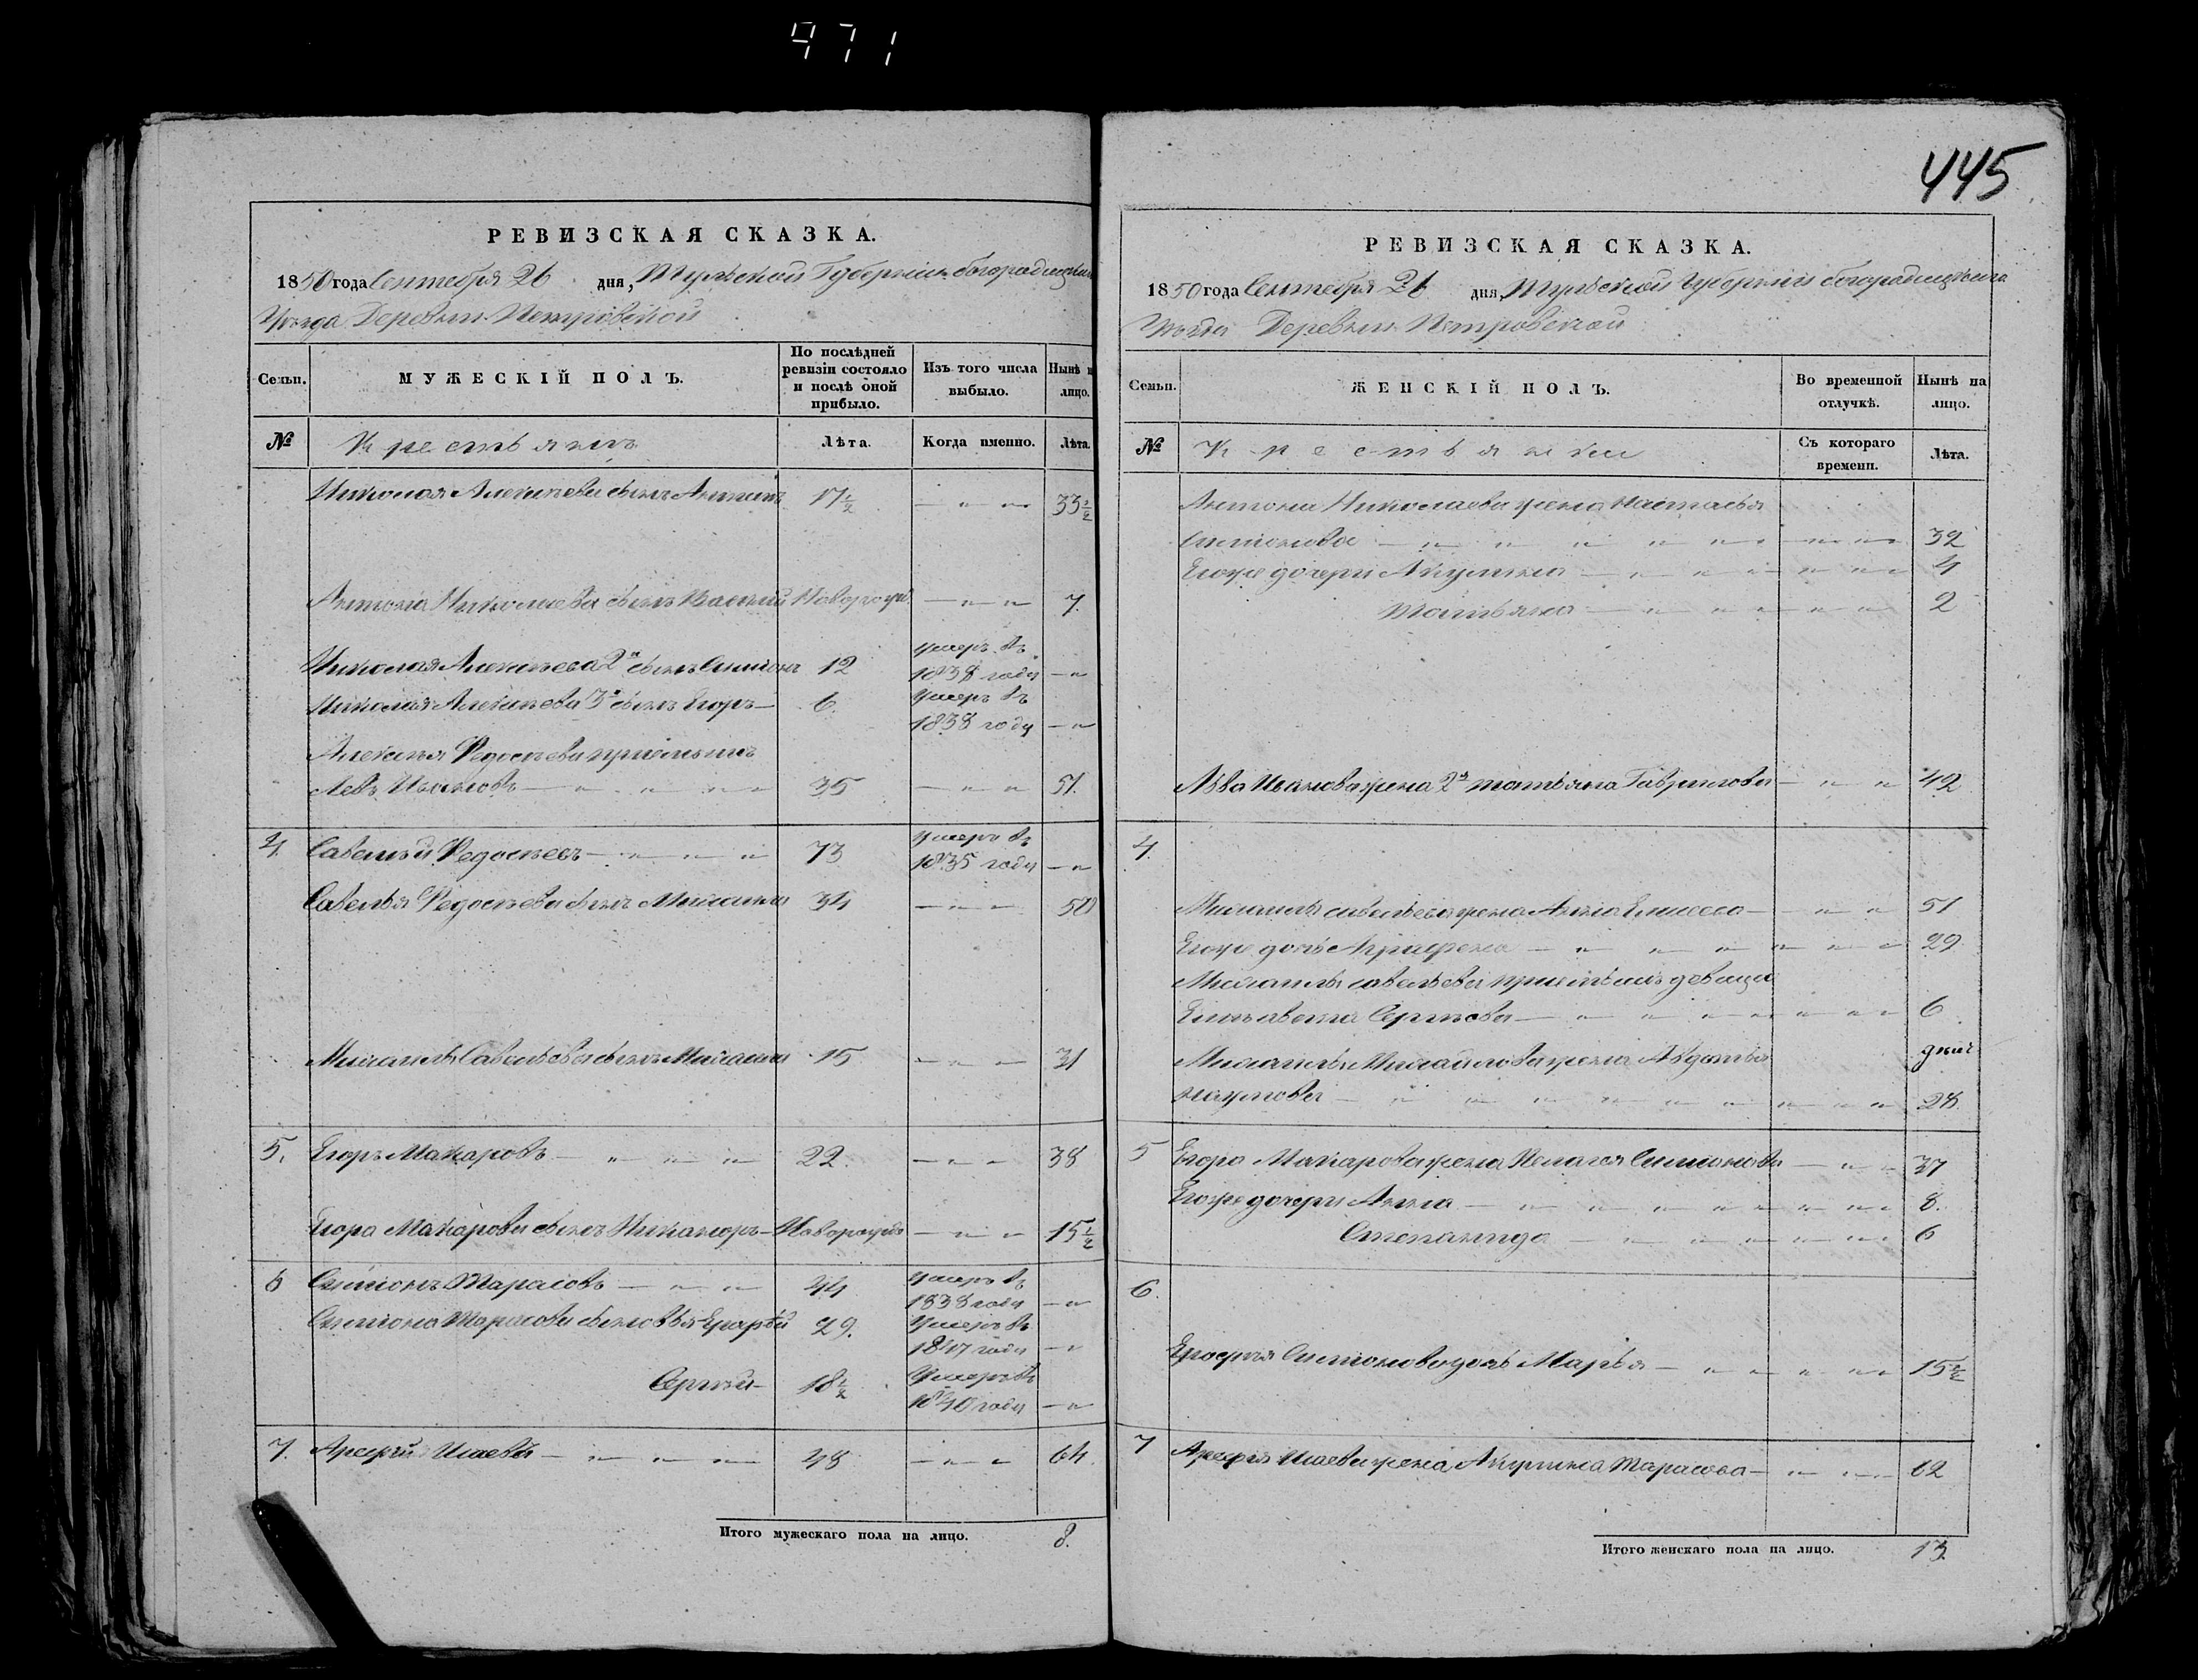 471
445
РЕВИЗСКАЯ СКАЗКА.
1850 года Сентября 26 дня, Тульской Губернии Богородицкаго
Уѣзда Деревни Петровской
Семьи. МУЖЕСКІЙ ПОЛЪ. По послѣдней ревизіи состояло и послѣ оной прибыло. Изъ того числа выбыло. Нынѣ на лицо.
№ Крестьянъ Лѣта. Когда именно. Лѣта.
Николая Алексѣева сынъ Антонъ 17½ 33½
Антона Николаева сынъ Василий Новорож 7.
Николая Алексѣева 2й сынъ Симионъ 12 умеръ въ 1838 году
Николая Алексѣева 3й сынъ Егоръ 6. умеръ въ 1838 году
Алексѣя Федосѣева приемышъ
Левъ Ивановъ 35 51.
4. Савелий Федосѣевъ 73 умеръ въ 1835 году
Савелья Федосѣева сынъ Михаила 34 50
Михаилы Савельева сынъ Михаила 15 31
5. Егоръ Макаровъ 22. 38
Егора Макарова сынъ Никаноръ Новорожд 15½
6 Симионъ Тарасовъ 44 умеръ въ 1838 году
Симиона Тарасова сыновья Ерофѣй 29. умеръ въ 1847 году
Сергѣй 18½ умеръ въ 1840 году
7. Арефий Исаевъ 48 64.
Итого мужескаго пола на лицо. 8.
РЕВИЗСКАЯ СКАЗКА.
1850 года Сентября 26 дня, Тульской Губернии Богородицкаго
Уѣзда Деревни Петровской
Семьи. ЖЕНСКІЙ ПОЛЪ. Во временной отлучкѣ. Нынѣ на лицо.
№ Крестьянки Съ котораго времени. Лѣта.
Антона Николаева жена Настасья
Симионова 32
Егоже дочери Акулина 4
Татьяна 2
Льва Иванова жена 2я Татьяна Гаврилова 42
4.
Михаилы Савельева жена Анна Елисеева 51
Егоже дочь Аграфена 29
Михаилы Савельева приемышъ девица
Елизавета Сергѣева 6
Михаилы Михайлова жена Авдотья
Наумова 28.
5 Егора Макарова жена Пелагея Симионова 37
Егоже дочери Анна 8.
Степанида 6
6.
Ерофѣя Симионова дочь Марья 15½
7 Арефия Исаева жена Акулина Тарасова 62
Итого женскаго пола на лицо. 13.